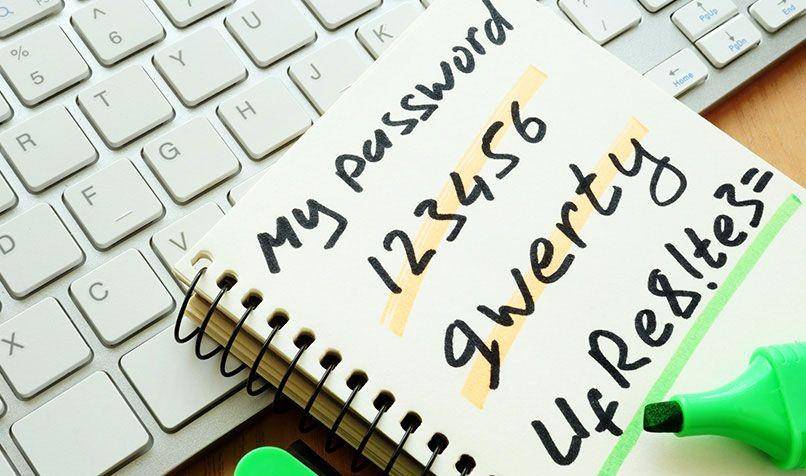 My password
123456
qwerty
UfRe8!te3=
^
6
%
5
Y
U
T
R
H
J
K
G
F
D
V
C
X
PgUp
PgDn
Home
End